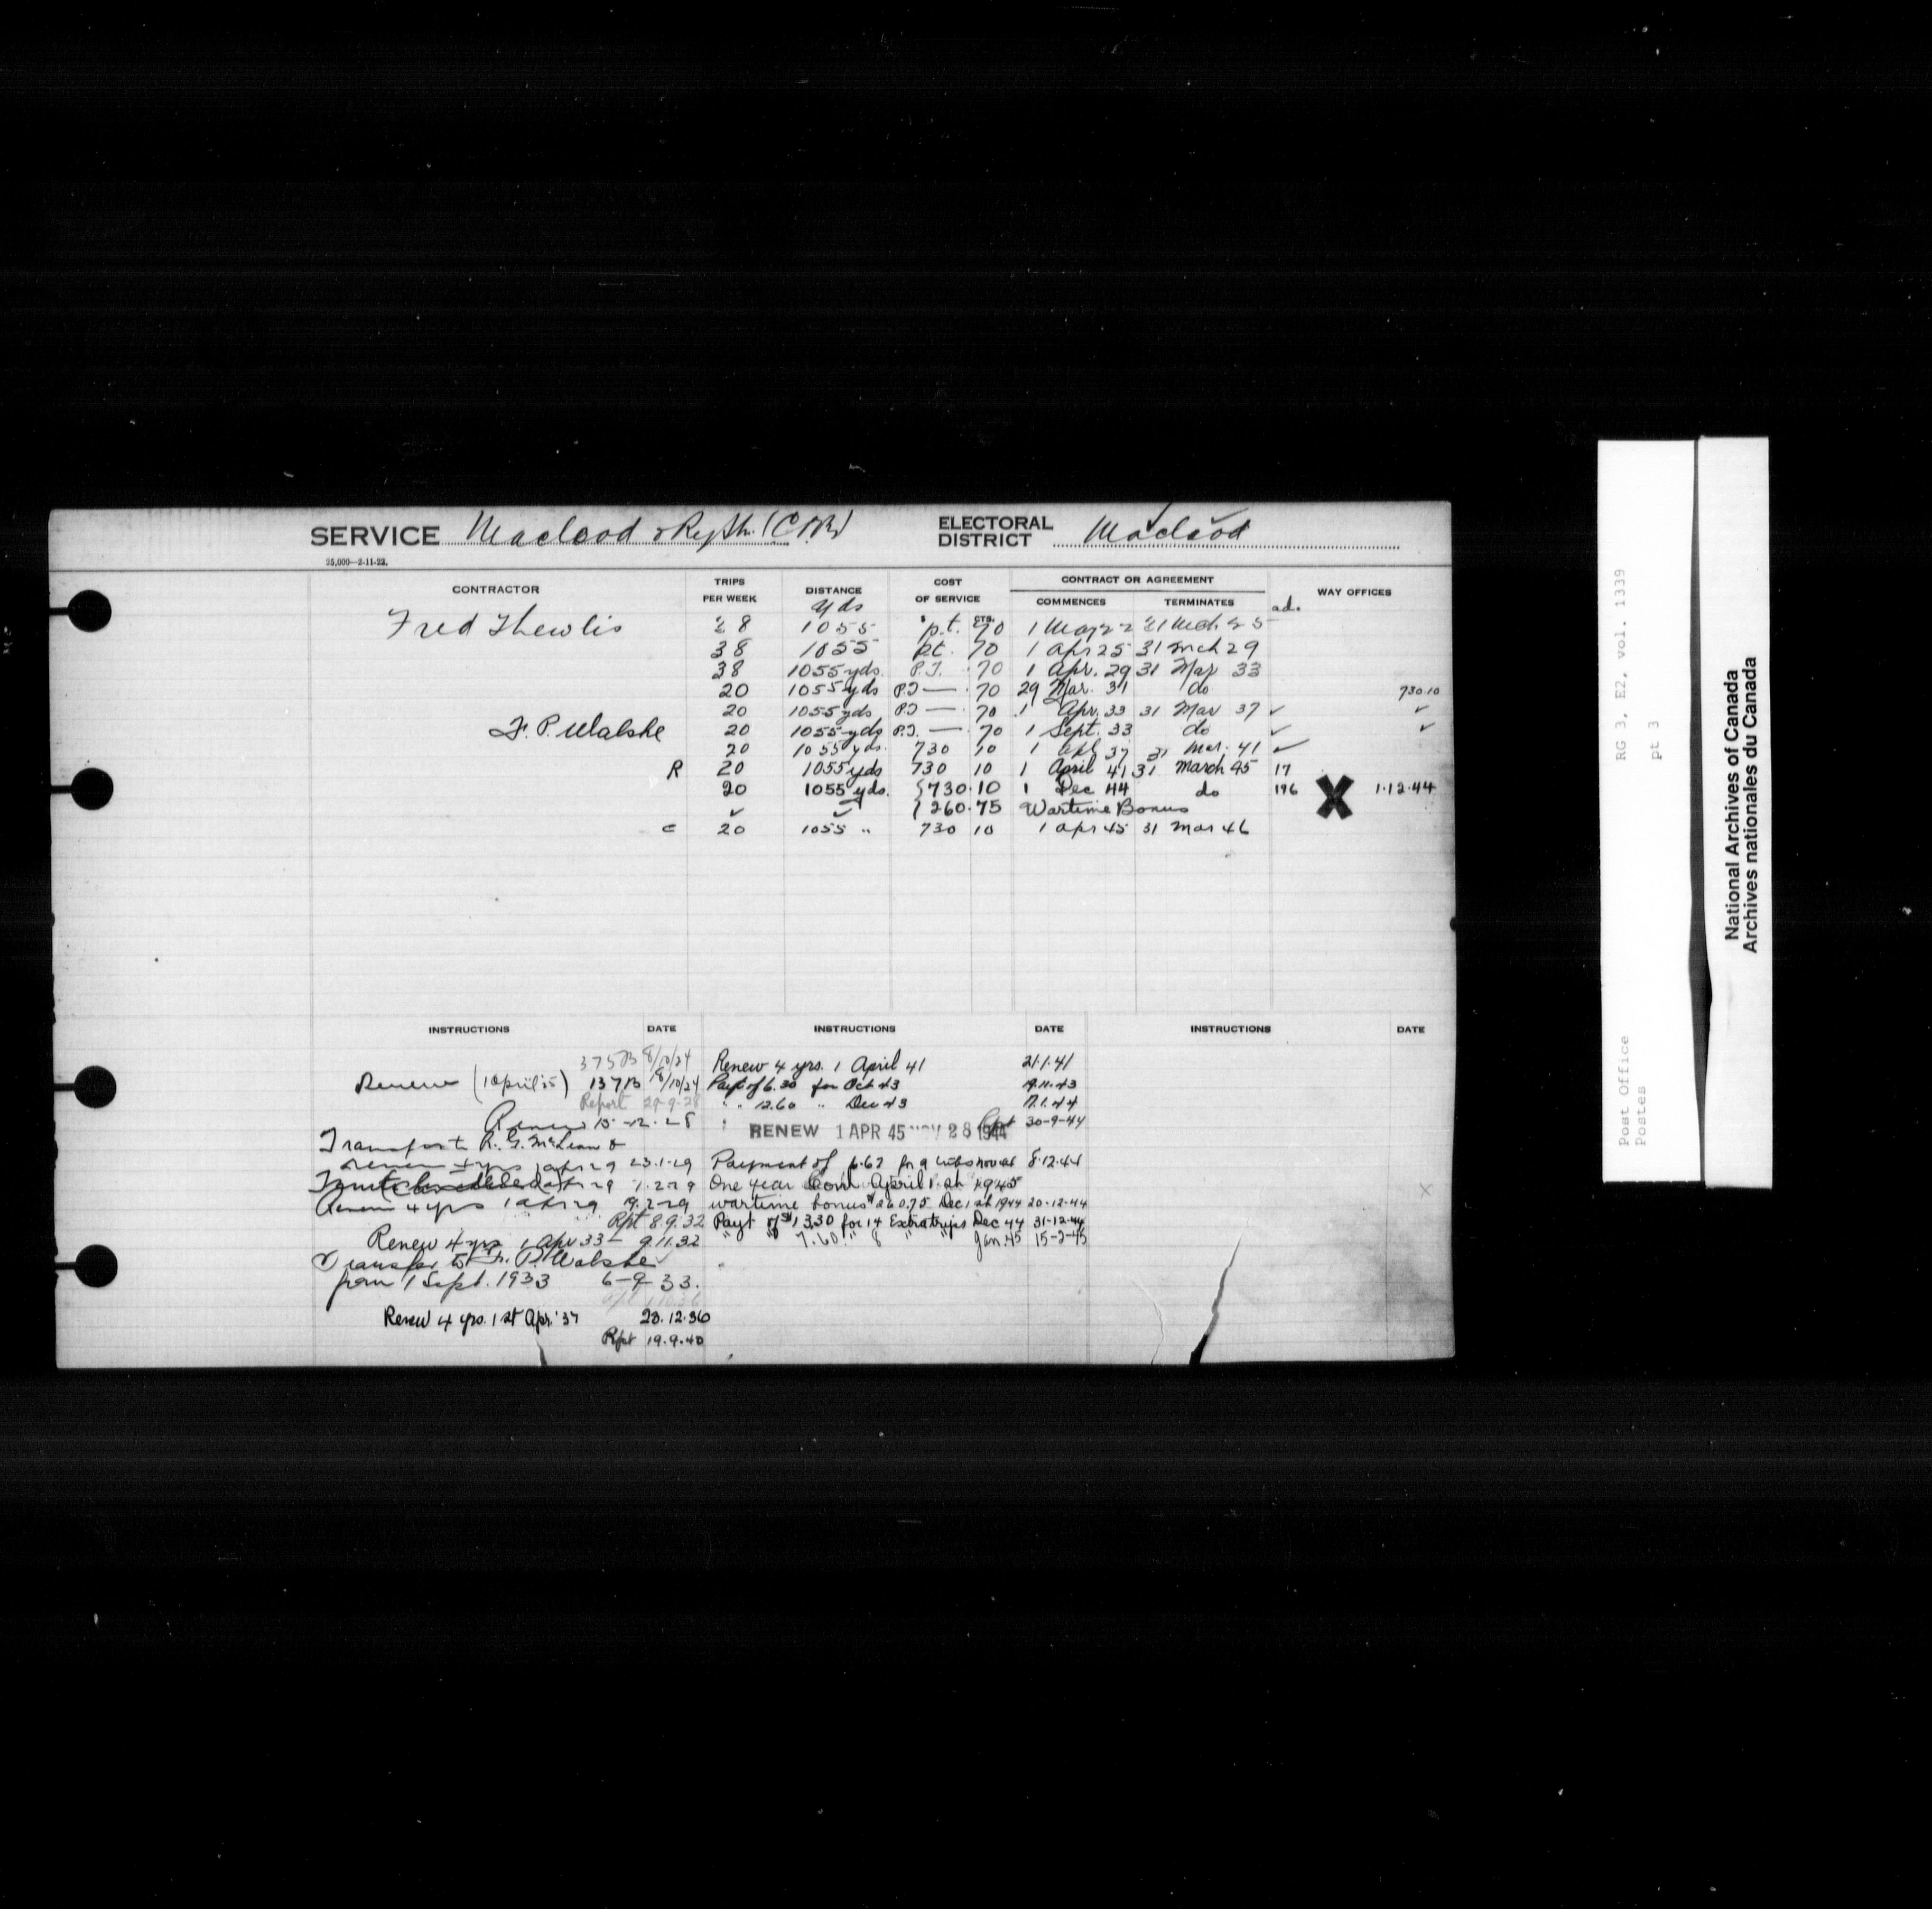 SERVICE Macleod & Ry Stn. (C.P.R.) ELECTORAL DISTRICT Macleod
25,000—2-11-22.
CONTRACTOR TRIPS PER WEEK DISTANCE COST OF SERVICE CONTRACT OR AGREEMENT COMMENCES TERMINATES WAY OFFICES
yds $ CTS. ad.
Fred Thewlis 28 1055 p.t. 70 1 May 22 31 Mch 25
38 1055 pt. 70 1 Apr 25 31 mch 29
38 1055 yds. P.T. 70 1 Apr. 29 31 Mar 33
20 1055 yds P.T — 70 29 Mar. 31 do 730.10
20 1055 yds P.T — 70 1 Apr. 33 31 Mar 37 ✓ ✓
F. P. Walshe 20 1055 yds P.T. — 70 1 Sept. 33 do ✓ ✓
20 1055 yds. 730 10 1 apl 37 31 Mar. 41 ✓
R 20 1055 yds 730 10 1 April 41 31 March 45 17
20 1055 yds. {730.10 1 Dec 44 do 196 X 1.12.44
✓ ✓ {260.75 Wartime Bonus
c 20 1055 " 730 10 1 Apr 45 31 Mar 46
INSTRUCTIONS DATE INSTRUCTIONS DATE INSTRUCTIONS DATE
375B 8/10/24
Renew (1 April 25) 137B 18/10/24
Report 29-9-28
Renew 15-12-28
Transfer to R. G. McLean &
renew 4 yrs 1 apr 29 23.1.29
1.2.29
Renew 4 yrs 1 apr 29 19.2.29
Rpt 8.9.32
Renew 4 yrs 1 Apr 33 - 9.11.32
Transfer to F. P. Walshe
from 1 Sept. 1933 6-9-33.
Renew 4 yrs. 1st Apr. '37 28.12.36
Rpt 19.9.40
Renew 4 yrs. 1 April 41 21.1.41
Payt of 6.30 for Oct 43 19.11.43
" " 12.60 " Dec 43 17.1.44
Rpt 30-9-44
RENEW 1 APR 45 NOV 28 1944
Payment of 6.67 for 9 trips Nov 44 8.12.44
One year from April 1st 1945
wartime bonus $260.75 Dec 1st 1944 20-12-44
Payt of $13.30 for 14 Extra trips Dec 44 31-12-44
" " 7.60 " 8 " " Jan. 45 15-2-45
x
Post Office
Postes
RG 3, E2, vol. 1339
pt 3
National Archives of Canada
Archives nationales du Canada